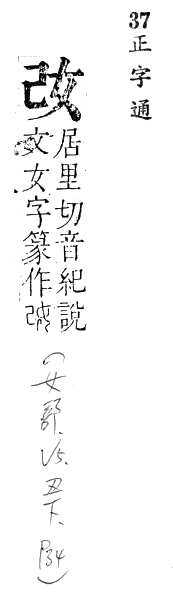 37 正字通
居里切音紀說
文女字篆作
(女部. V5. 丑下. P34)